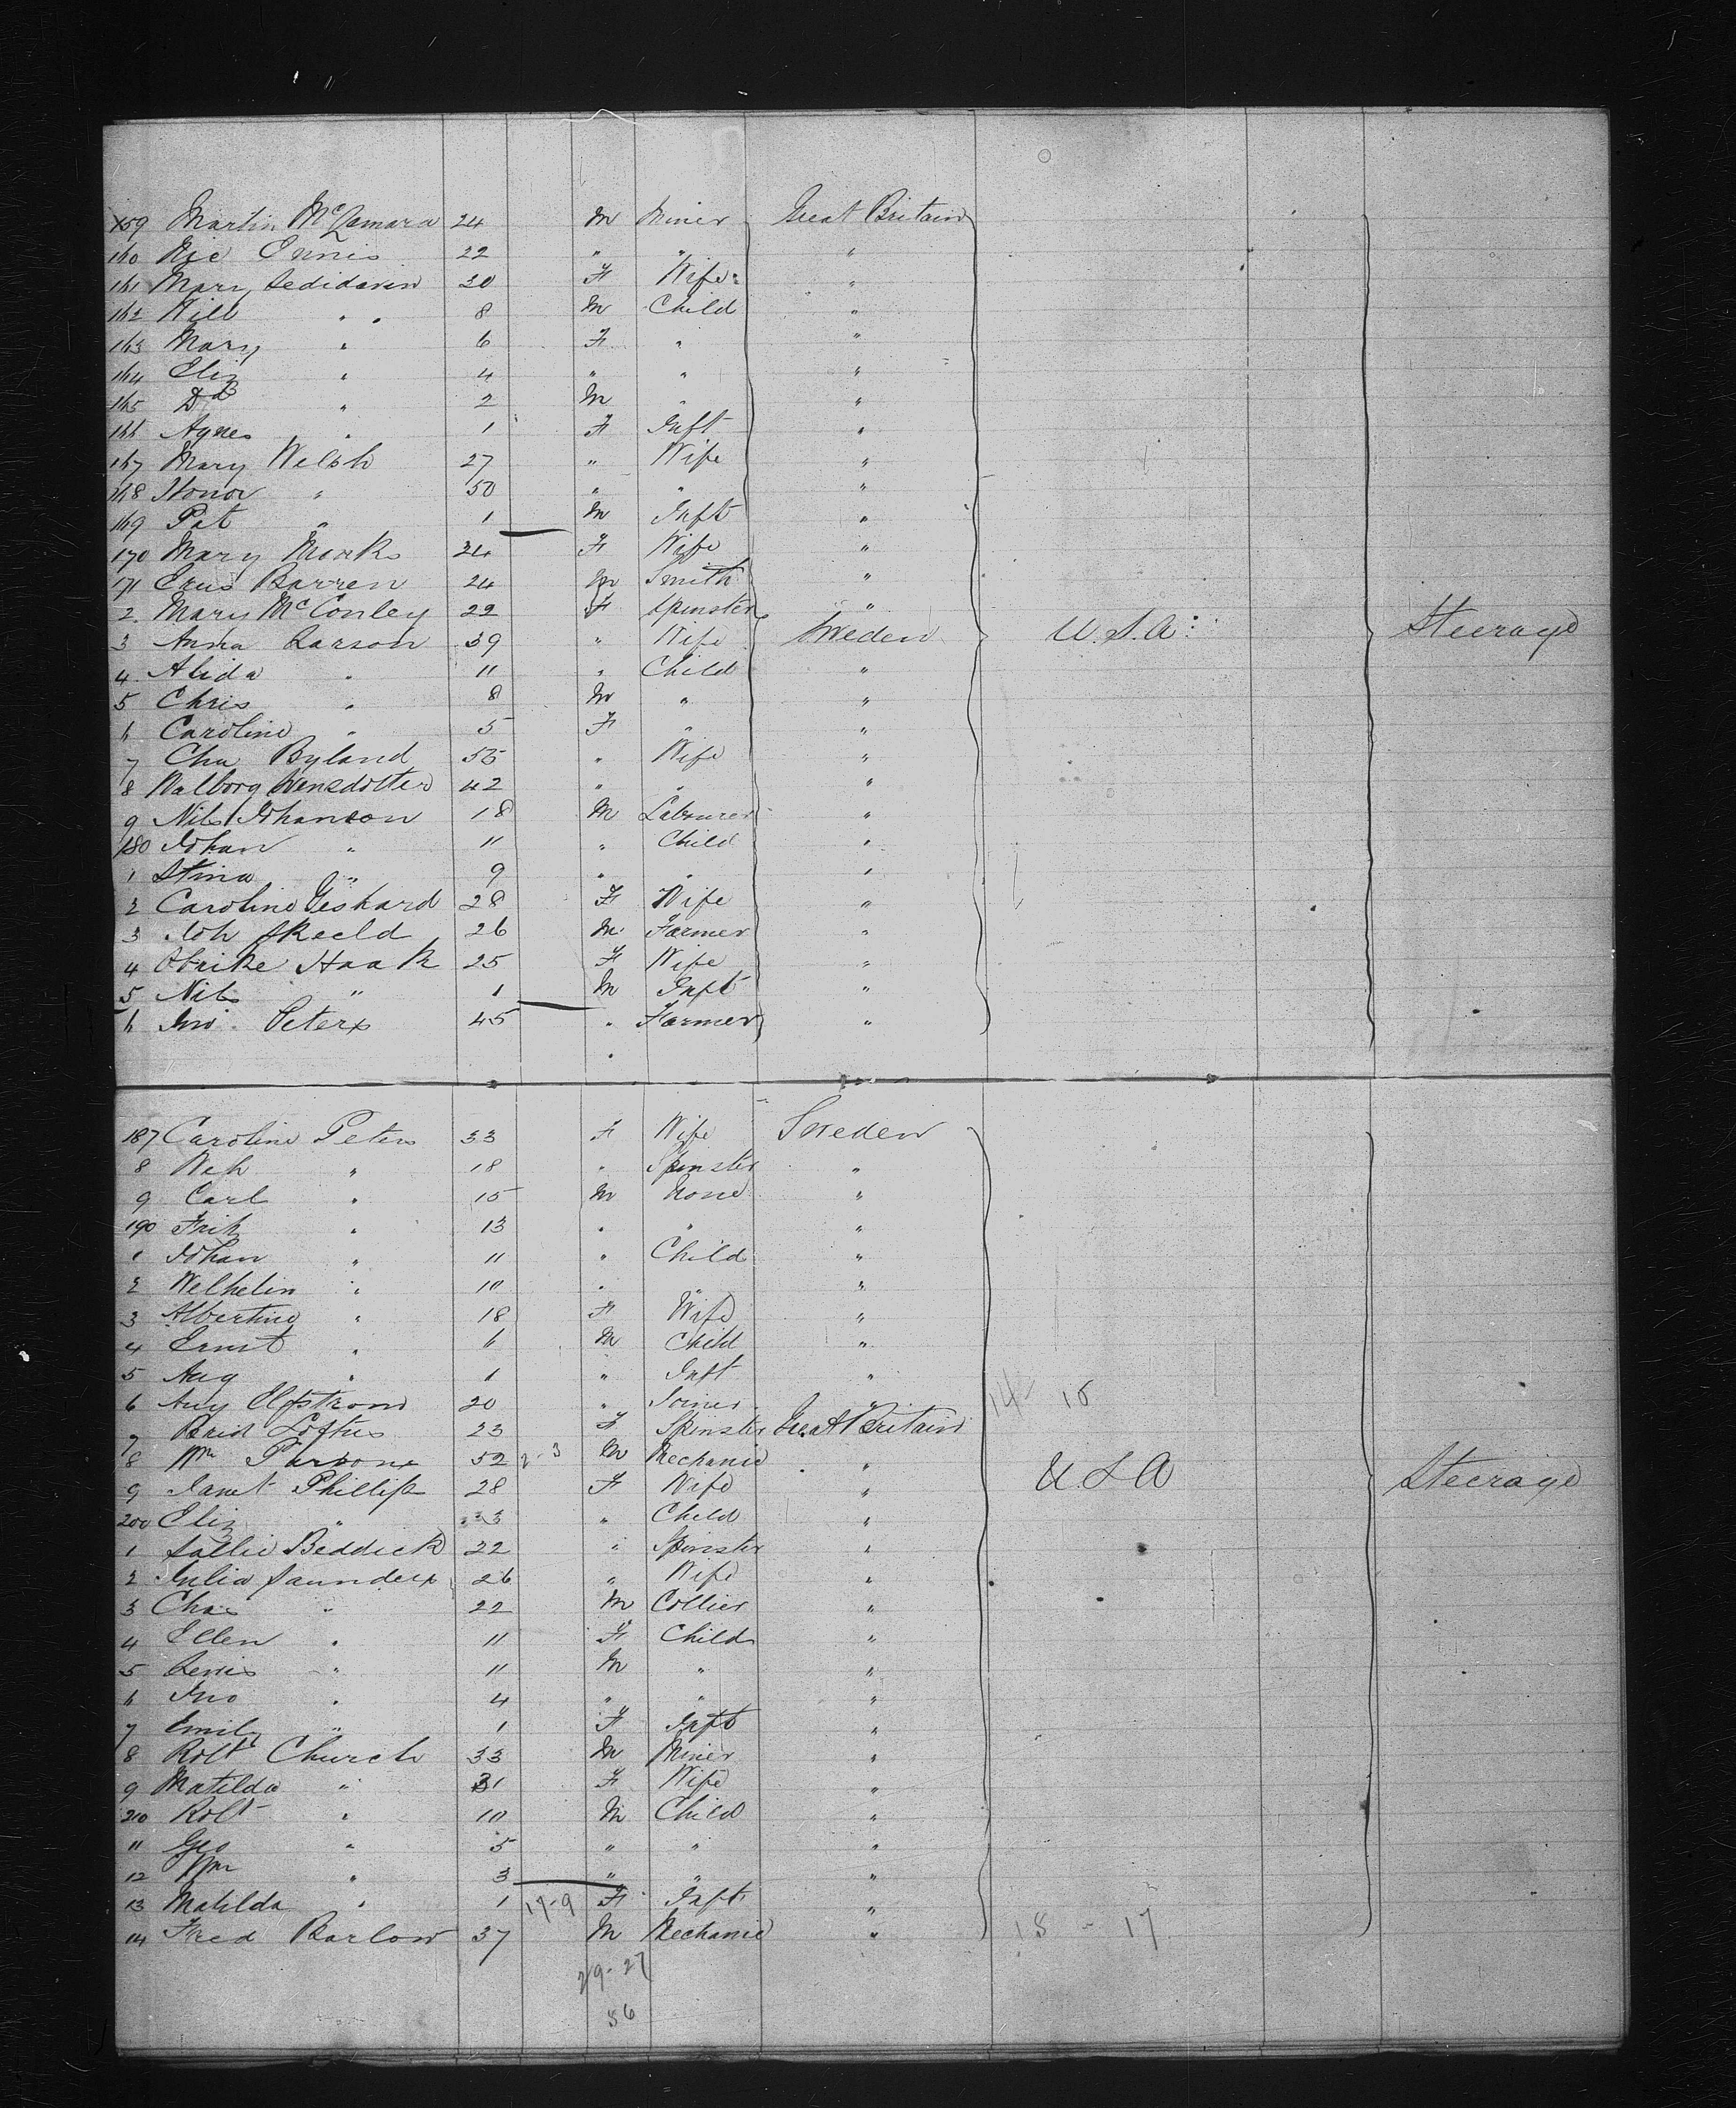 159 Martin McNamara 24 M Miner Great Britain
160 Nic Ennis 22 " " "
161 Mary 30 F Wife "
162 Will " " 8 M Child "
163 Mary " 6 F " "
164 Eliz " 4 " " "
165 Dd " 2 M " "
166 Agnes " 1 F Inft "
167 Mary Welsh 27 " Wife "
168 Honor " 50 " " "
169 Pat " 1 M Inft "
170 Mary Monks 34 F Wife "
171 Barren 24 M Smith "
2. Mary McConley 22 F Spinster "
3 Anna Larson 39 " Wife Sweden U.S.A. Steerage
4. Alida " 11 " Child "
5 Chris " 8 M " "
6 Caroline " 5 F " "
7 Cha Byland 55 " Wife "
8 Walborg 42 " " "
9 Nils Johanson 18 M Labourer "
180 Johan " 11 " Child "
1 Stina " 9 " " "
2 Caroline Geshard 28 F Wife "
3 Joh Skeeld 26 M. Farmer "
4 Ulrike Haak 25 F Wife "
5 Nils " 1 M Inft "
6 Jno. Peters 45 " Farmer "
187 Caroline Peters 33 F Wife Sweden
8 " 18 " Spinster "
9 Carl " 15 M None "
190 Fritz " 13 " " "
1 Johan " 11 " Child "
2 Welhelin " 10 " " "
3 Albertine " 18 F Wife "
4 Ernst " 6 M Child "
5 Aug " 1 " Inft "
6 Aug Elfstrom 20 " Joiner " 14 - 15
7 Brid Loftus 23 F Spinster Great Britain
8 Wm Parsons 52 2-3 M Mechanic "
9 Janet Phillips 28 F Wife " U S A Steerage
200 Eliz " 3 " Child "
1 Sallie Beddick 22 " Spinster "
2 Julia Saunders 26 " Wife "
3 Chas " 22 M Collier "
4 Ellen " 11 F Child "
5 Lewis " 11 M " "
6 Jno " 4 " " "
7 Emily " 1 F Inft "
8 Robt Church 33 M Miner "
9 Matilda " 31 F Wife "
210 Robt " 10 M Child "
11 Geo " 5 " " "
12 Wm " 3 " " "
13 Matilda " 1 17-9 F Inft "
14 Fred Barlow 37 M Mechanic " 18 - 17
29-27
56